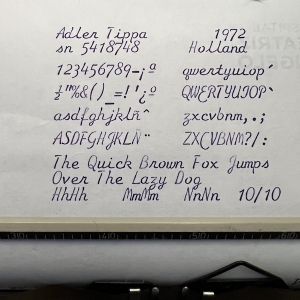 Adler Tippa 1972
sn 5418748 Holland
123456789-¡º qwertyuiop`
½"%&()_=!'¿º QWERTYUIOP`
asdfghjklñ´ zxcvbnm,.;
ASDFGHJKLÑ¨ ZXCVBNM?/:
The Quick Brown Fox Jumps
Over The Lazy Dog
HhHh MmMm NnNn 10/10